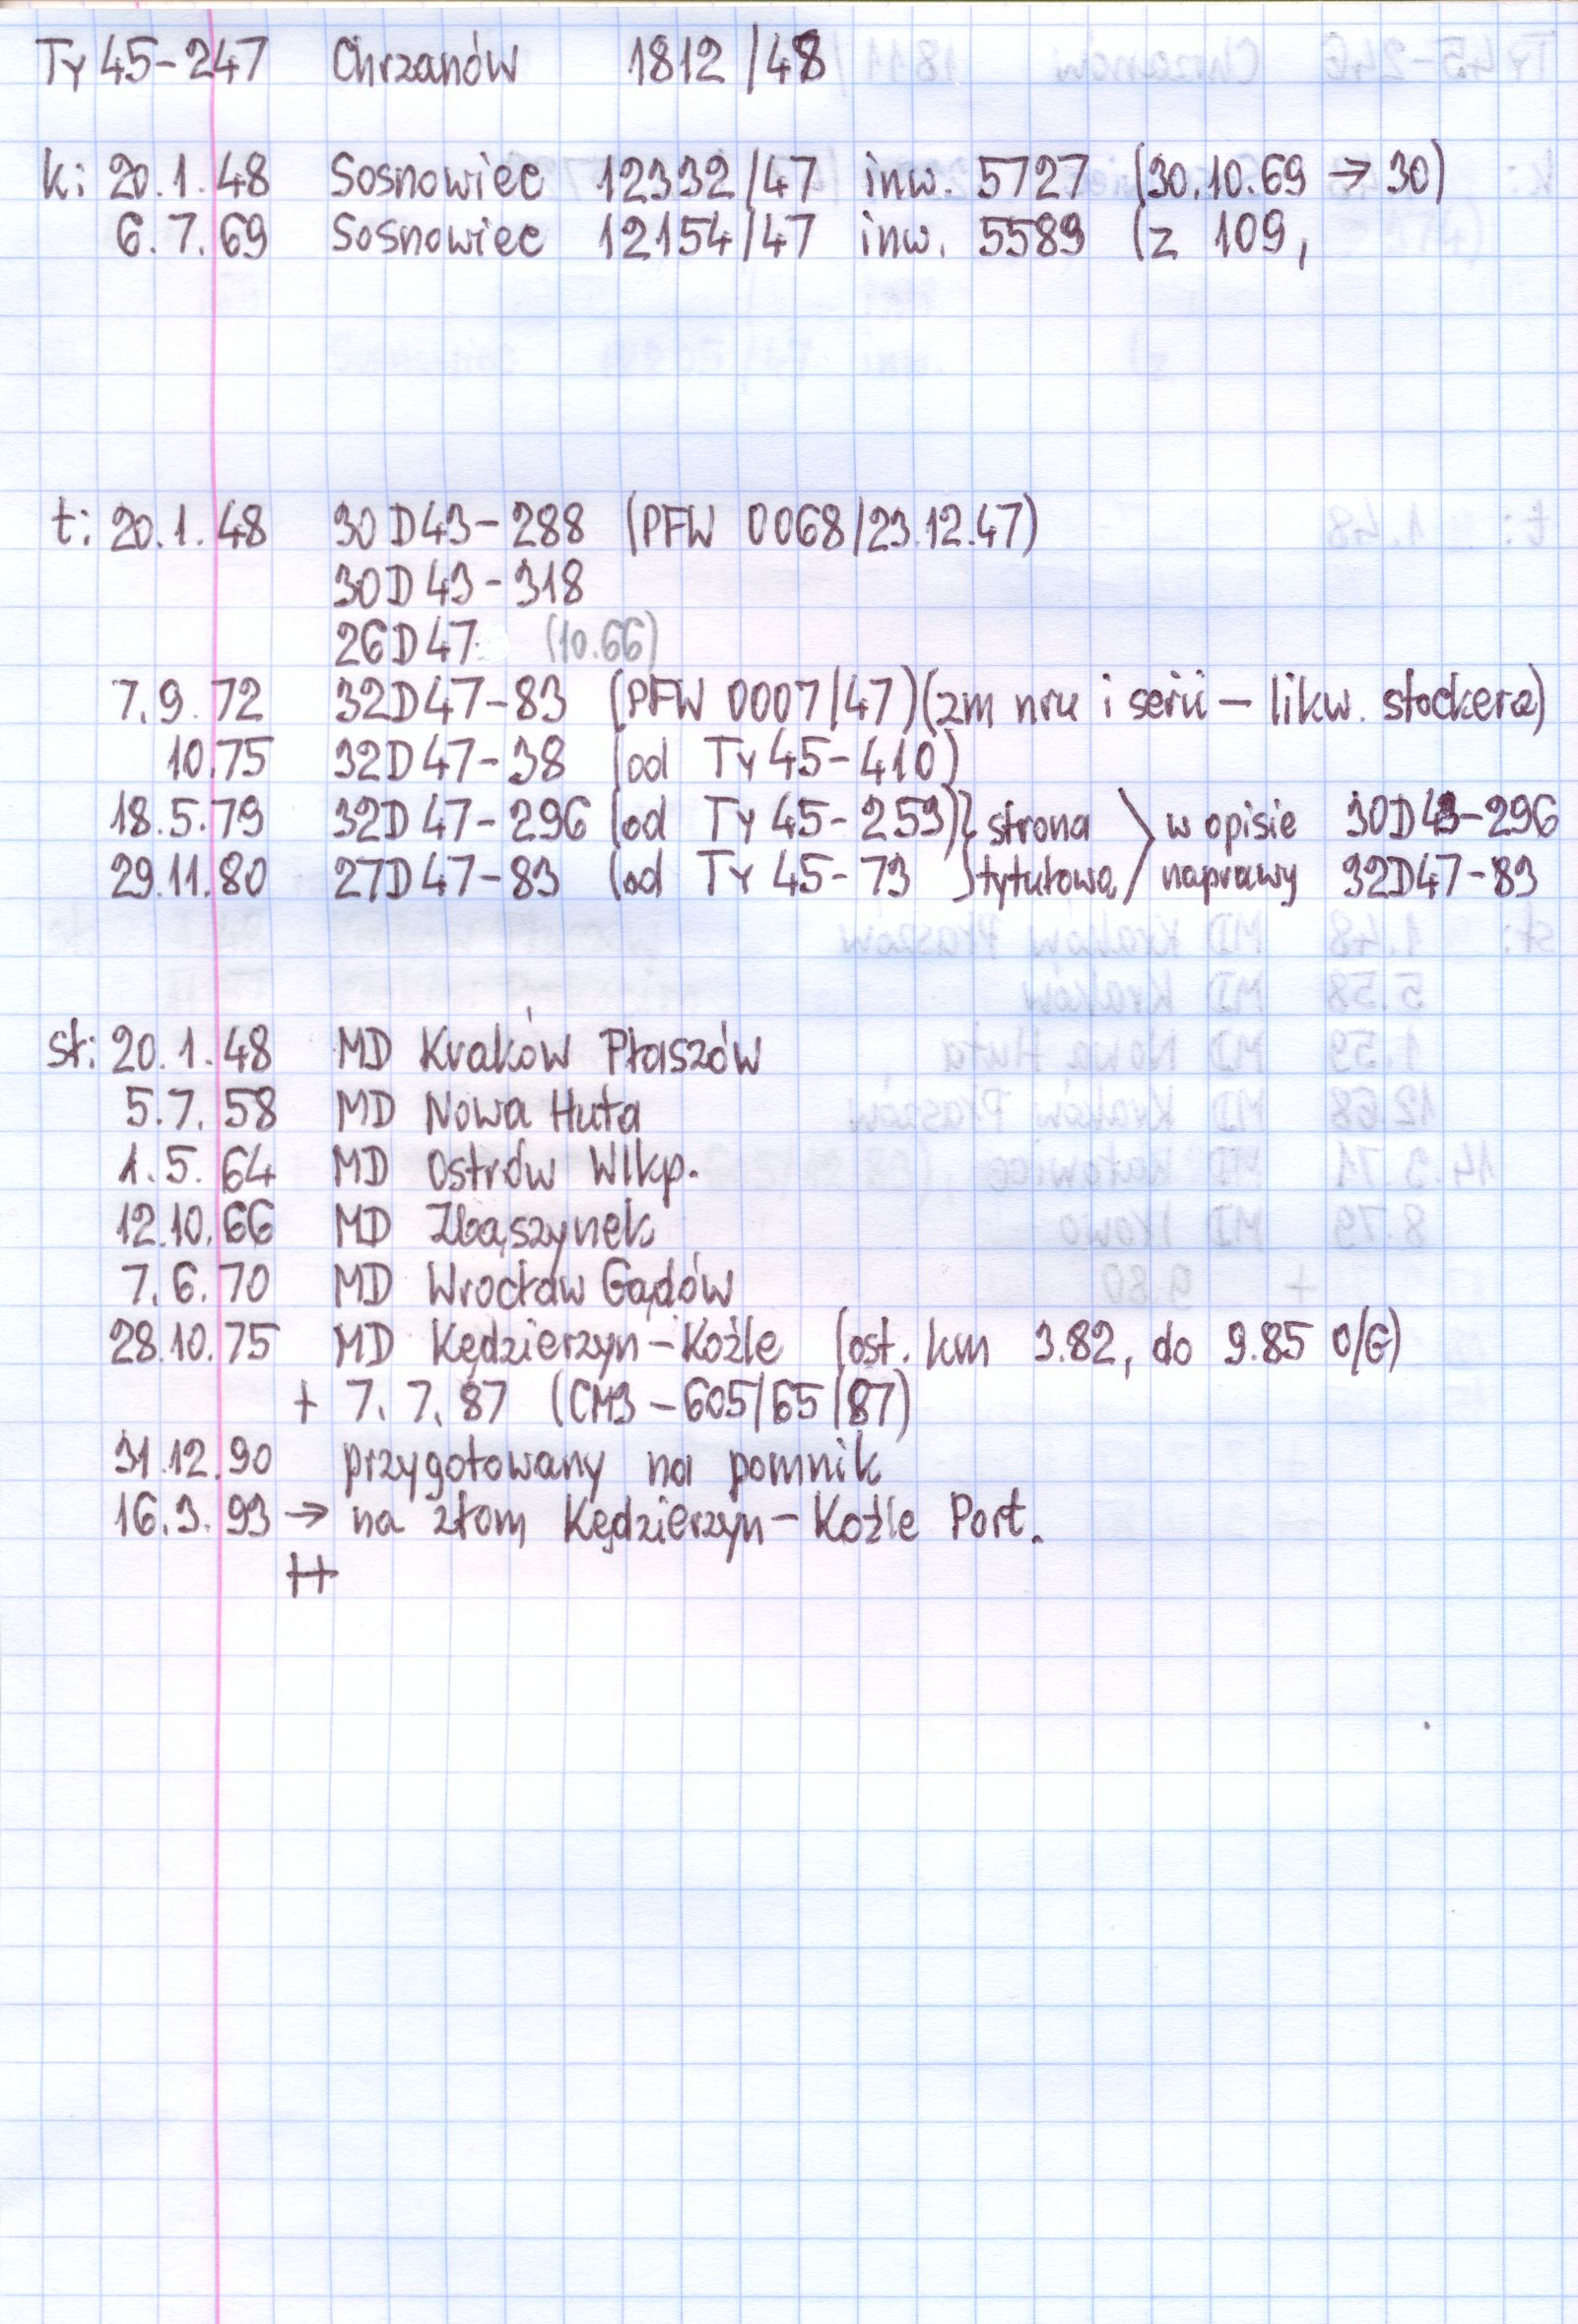 Ty 45-247 Chrzanów 1812/48
k: 20.1.48 Sosnowiec 12332/47 inw. 5727 (30.10.69 → 30)
6.7.69 Sosnowiec 12154/47 inw. 5589 (z 109,
t: 20.1.48 30D43-288 (PFW 0068/23.12.47)
30D43-318
26D47 (10.66)
7.9.72 32D47-83 (PFW 0007/47) (zm nru i serii – likw. stockera)
10.75 32D47-38 (od Ty 45-410)
18.5.79 32D47-296 (od Ty 45-259) } strona > w opisie 30D43-296
29.11.80 27D47-83 (od Ty 45-73 } tytułowa > naprawy 32D47-83
st: 20.1.48 MD Kraków Płaszów
5.7.58 MD Nowa Huta
1.5.64 MD Ostrów Wlkp.
12.10.66 MD Zbąszynek
7.6.70 MD Wrocław Gądów
28.10.75 MD Kędzierzyn-Koźle (ost. km 3.82, do 9.85 O/G)
+ 7.7.87 (CM3-605/65/87)
31.12.90 przygotowany na pomnik
16.3.93 → na złom Kędzierzyn-Koźle Port.
++